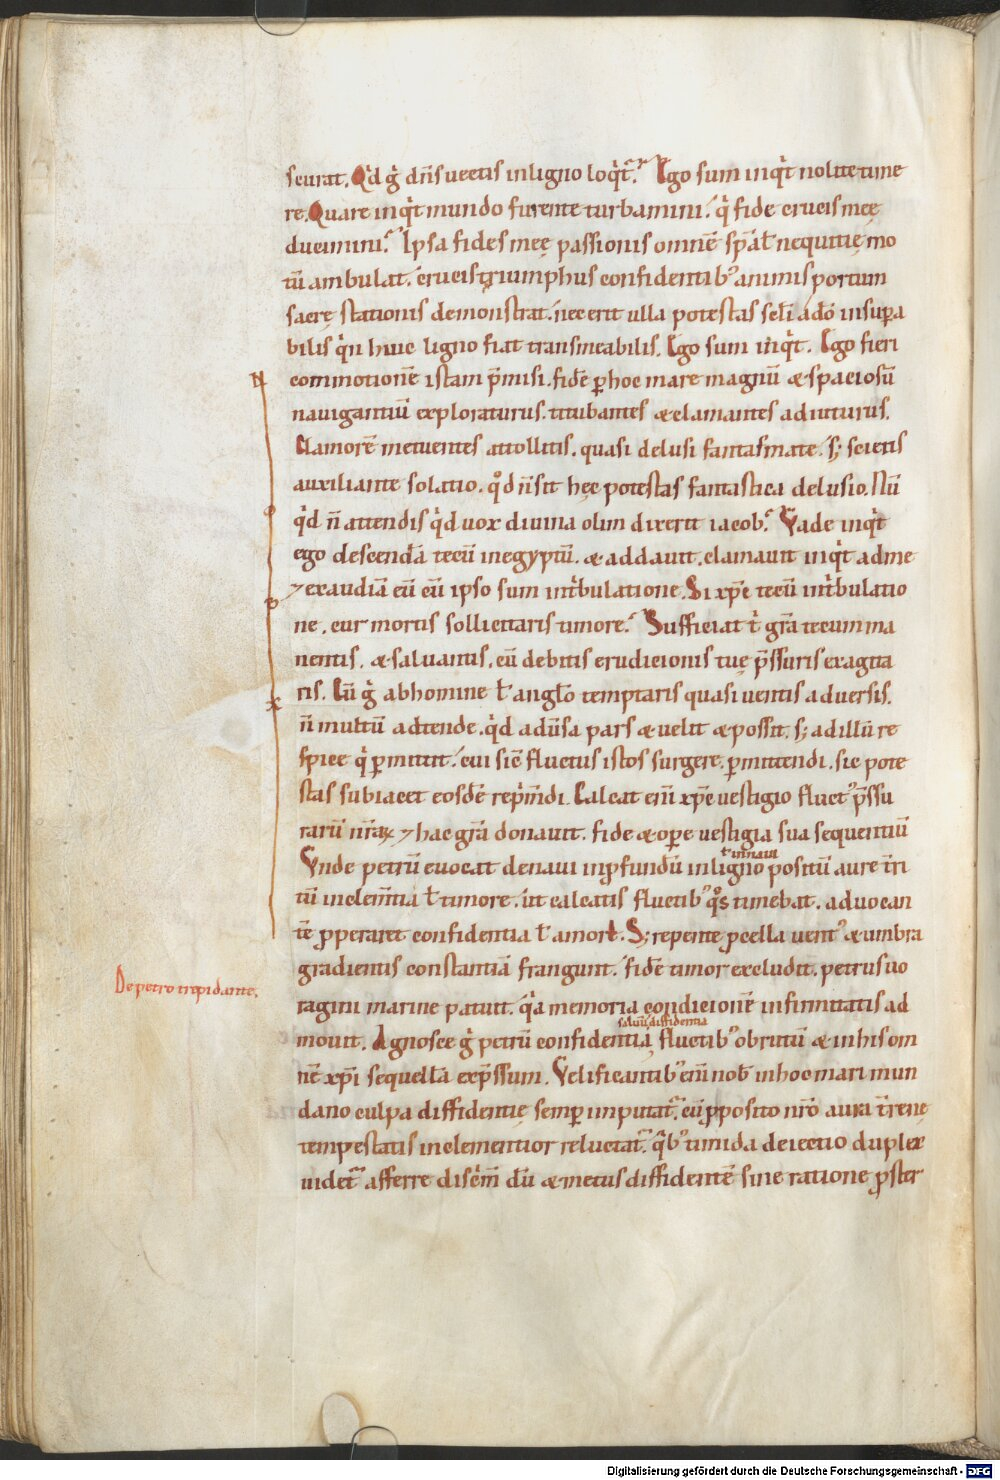 scurat. Qͥd gͦ dn̄s uectis in ligno loqͥt᷑? Ego sum inqͥt nolite time
re. Quare inqͥt mundo furente turbamini? qͥ fide crucis meę
ducimini? Ipsa fides meę passionis omnē sp̄alē nequitię mo
tū ambulat. crucis triumphus confidentibꝰ animis portum
sacrę stationis demonstrat. nec erit ulla potestas sc̄li adō insupa
bilis qͥn huic ligno fiat transmeabilis. Ego sum inqͥt. Ego fieri
commotionē istam p̄misi. fidē ꝑ hoc mare magnū & spaciosū
nauigantiū exploraturus. titubantes & clamantes adiuturus.
Clamorē metuentes attollitis. quasi delusi fantasmate. s; scietis
auxiliante solatio. qͦd n̄ sit hęc potestas fantastica delusio. Nū
qͥd n̄ attendis qͥd uox diuina olim dixerit iacob? Vade inqͥt
ego descendā tecū in egyptū. & addauit. clamauit inqͥt ad me
⁊ exaudiā eū cū ipso sum in tͥbulatione. Si xp̄c tecū in tͥbulatio
ne. cur mortis sollicitaris timore? Sufficiat tͥ gr̄a tecum ma
nentis. & saluantis. cū debitis erudicionis tuę p̄ssuris exagita
ris. Cū gͦ ab homine ł anglō temptaris quasi uentis aduersis.
n̄ multū adtende. qͥd adūsa pars & uelit & possit. s; ad illū re
spice qͥ ꝑmittit. cui sic̄ fluctus istos surgere ꝑmittendi. sic pote
stas subiacet eosdē rep̄mdi. Calcat em̄ xp̄c uestigio fluctꝰ p̄ssu
rarū nr̄aꝝ ⁊ hac gr̄a donauit. fide & oꝑe uestigia sua sequentiū
Vnde petrū euocat de naui in ꝓfundū in ligno positū aure tͥri
ł in naui
tū inclem̄tia ł timore. ut calcatis fluctibꝰ qͦs timebat. aduocan
tē ꝓꝑaret confidentia ł amorē. S; repente ꝓcella uentꝰ & umbra
gradientis constantiā frangunt. fidē timor excludit. petrus uo
De petro trepidante.
ragini marine patuit. qͥa memoria condicionē infirmitatis ad
mouit. Agnosce gͦ petrū confidentia fluctibꝰ obrutū & in his om
saluū diffidentia
nē xp̄i sequellā exp̄ssum. Velificantibꝰ em̄ nob̄ in hoc mari mun
dano culpa diffidentię semꝑ imputat᷑. cū ꝓposito nr̄o aura tͥrenę
tempestatis inclementior reluctat᷑. qͥbꝰ timida deiectio duplex
uidet᷑ afferre disc̄m̄ dū & metus diffidentē sine ratione ꝓster
Digitalisierung gefördert durch die Deutsche Forschungsgemeinschaft - DFG